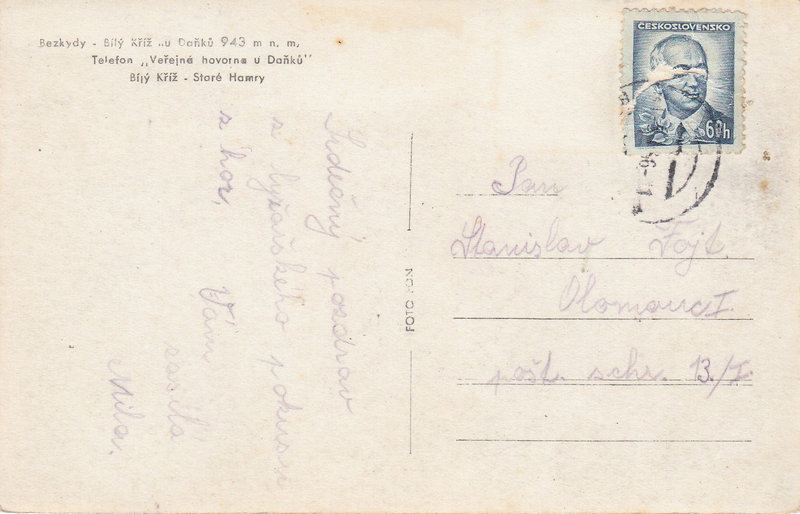 Bezkydy - Bílý Kříž „u Daňků 943 m n. m,
Telefon „Veřejná hovorna u Daňků"
Bílý Kříž - Staré Hamry
Srdečný pozdrav
z lyžařského pokusu
z hor,
Vám
zasílá
Mila.
FOTO FON
ČESKOSLOVENSKO
60h
Pan
Stanislav Fojt.
Olomouc I.
pošt. schr. 13./I.